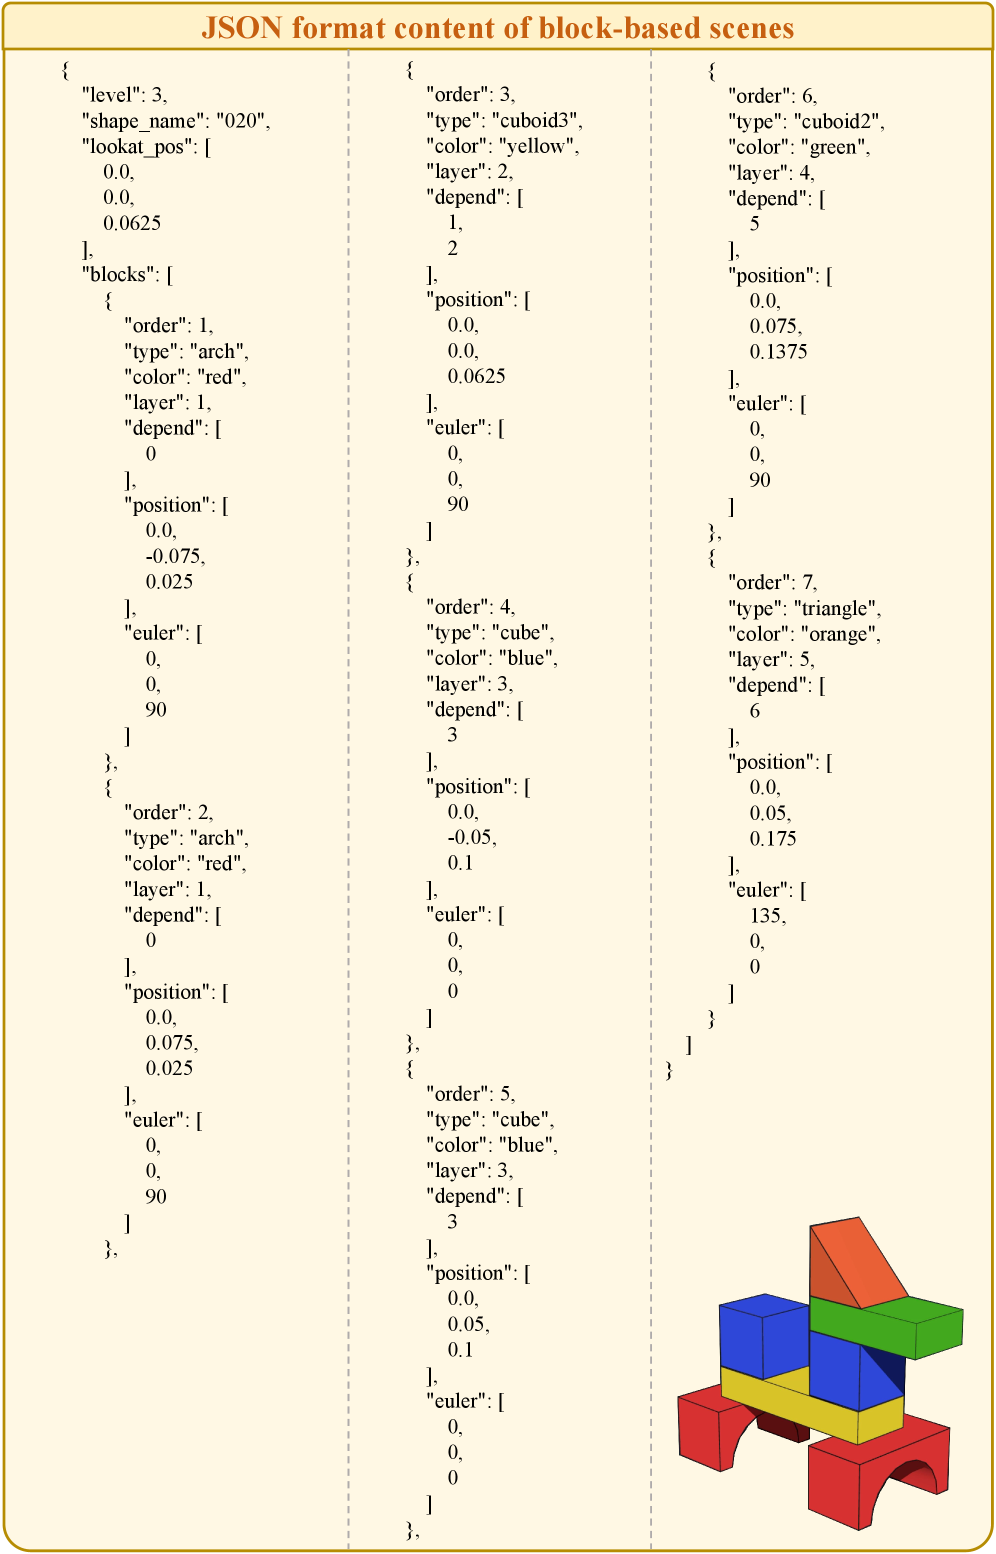 JSON format content of block-based scenes
{
"level": 3,
"shape_name": "020",
"lookat_pos": [
0.0,
0.0,
0.0625
],
"blocks": [
{
"order": 1,
"type": "arch",
"color": "red",
"layer": 1,
"depend": [
0
],
"position": [
0.0,
-0.075,
0.025
],
"euler": [
0,
0,
90
]
},
{
"order": 2,
"type": "arch",
"color": "red",
"layer": 1,
"depend": [
0
],
"position": [
0.0,
0.075,
0.025
],
"euler": [
0,
0,
90
]
},
{
"order": 3,
"type": "cuboid3",
"color": "yellow",
"layer": 2,
"depend": [
1,
2
],
"position": [
0.0,
0.0,
0.0625
],
"euler": [
0,
0,
90
]
},
{
"order": 4,
"type": "cube",
"color": "blue",
"layer": 3,
"depend": [
3
],
"position": [
0.0,
-0.05,
0.1
],
"euler": [
0,
0,
0
]
},
{
"order": 5,
"type": "cube",
"color": "blue",
"layer": 3,
"depend": [
3
],
"position": [
0.0,
0.05,
0.1
],
"euler": [
0,
0,
0
]
},
{
"order": 6,
"type": "cuboid2",
"color": "green",
"layer": 4,
"depend": [
5
],
"position": [
0.0,
0.075,
0.1375
],
"euler": [
0,
0,
90
]
},
{
"order": 7,
"type": "triangle",
"color": "orange",
"layer": 5,
"depend": [
6
],
"position": [
0.0,
0.05,
0.175
],
"euler": [
135,
0,
0
]
}
]
}